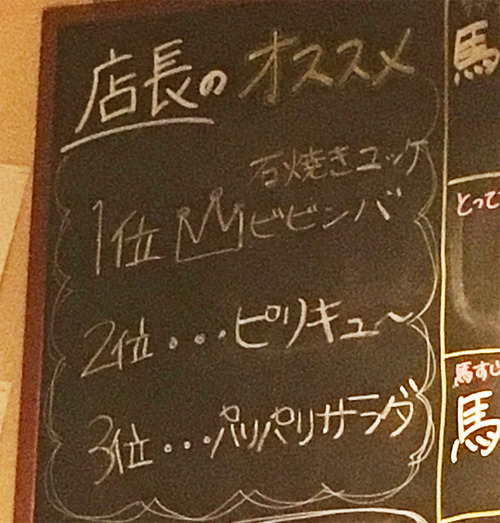 店長のオススメ
石焼きユッケ
1位 ビビンバ
2位・・・ピリキュ〜
3位・・・パリパリサラダ
馬
とって
馬すし
馬